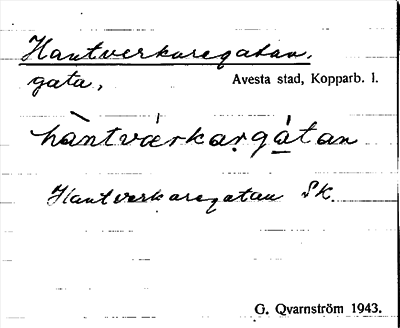 Hantverkaregatan.
gata, Avesta stad, Kopparb. l.
hàntvärkargátan
Hantverkaregatan SK.
G. Qvarnström 1943.